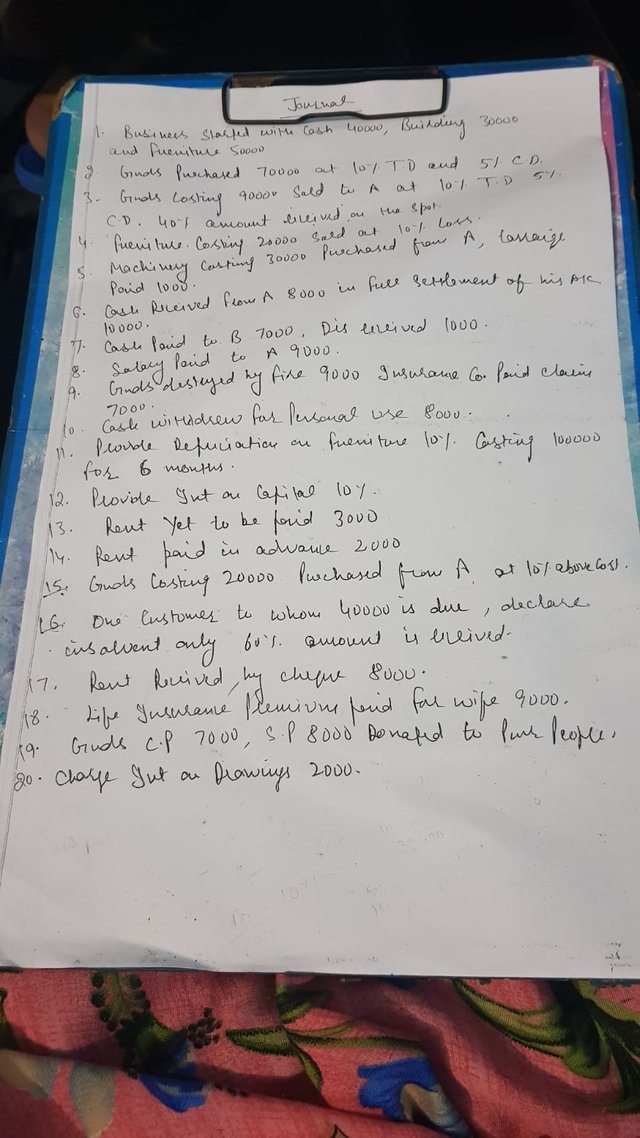 Journal
1. Business started with Cash 40000, Building 30000
and Furniture 50000
2. Goods Purchased 70000 at 10% T.D and 5% C.D.
3. Goods Costing 90000 Sold to A at 10% T.D 5%
C.D. 40% amount received on the spot.
4. Furniture Costing 20000 Sold at 10% Loss.
5. Machinery Costing 30000 Purchased from A, Carraige
Paid 1000.
6. Cash Received from A 8000 in full Settlement of his A/c
10000.
7. Cash Paid to B 7000, Dis received 1000.
8. Salary Paid to A 9000.
9. Goods destroyed by fire 9000 Insurance Co. Paid claim
7000.
10. Cash withdrew for Personal use 8000.
11. Provide Depreciation on furniture 10% Costing 100000
for 6 months.
12. Provide Int on Capital 10%.
13. Rent Yet to be paid 3000
14. Rent paid in advance 2000
15. Goods Costing 20000 Purchased from A at 10% above Cost.
16. One Customer to whom 40000 is due, declare
insolvent only 60% amount is received.
17. Rent Received by cheque 8000.
18. Life Insurance Premium paid for wife 9000.
19. Goods C.P 7000, S.P 8000 Donated to Poor People.
20. Charge Int on Drawings 2000.